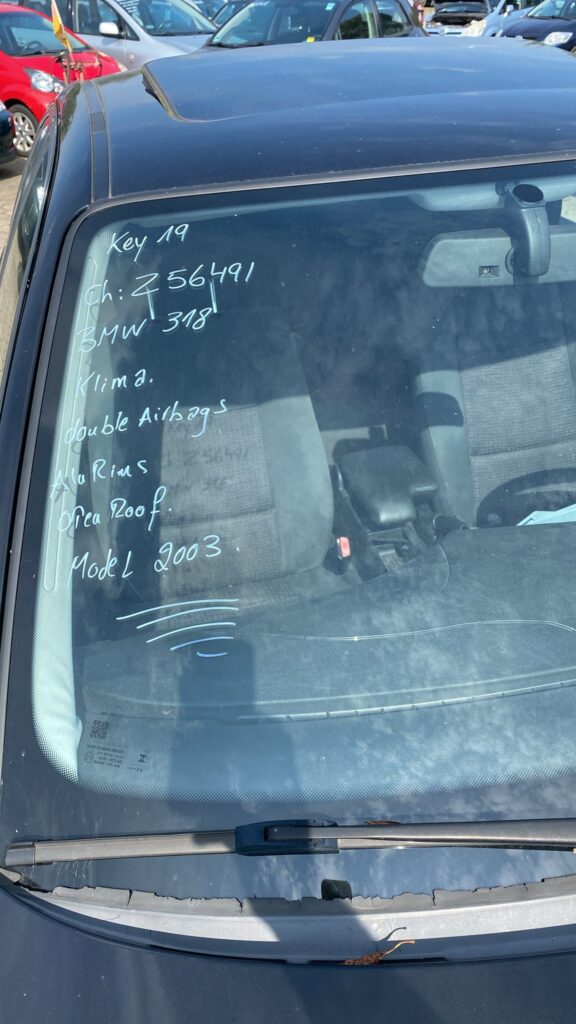 Key 19
Ch: Z56491
BMW 318
Klima.
double Airbags
Alu Rims
Open Roof.
Model 2003